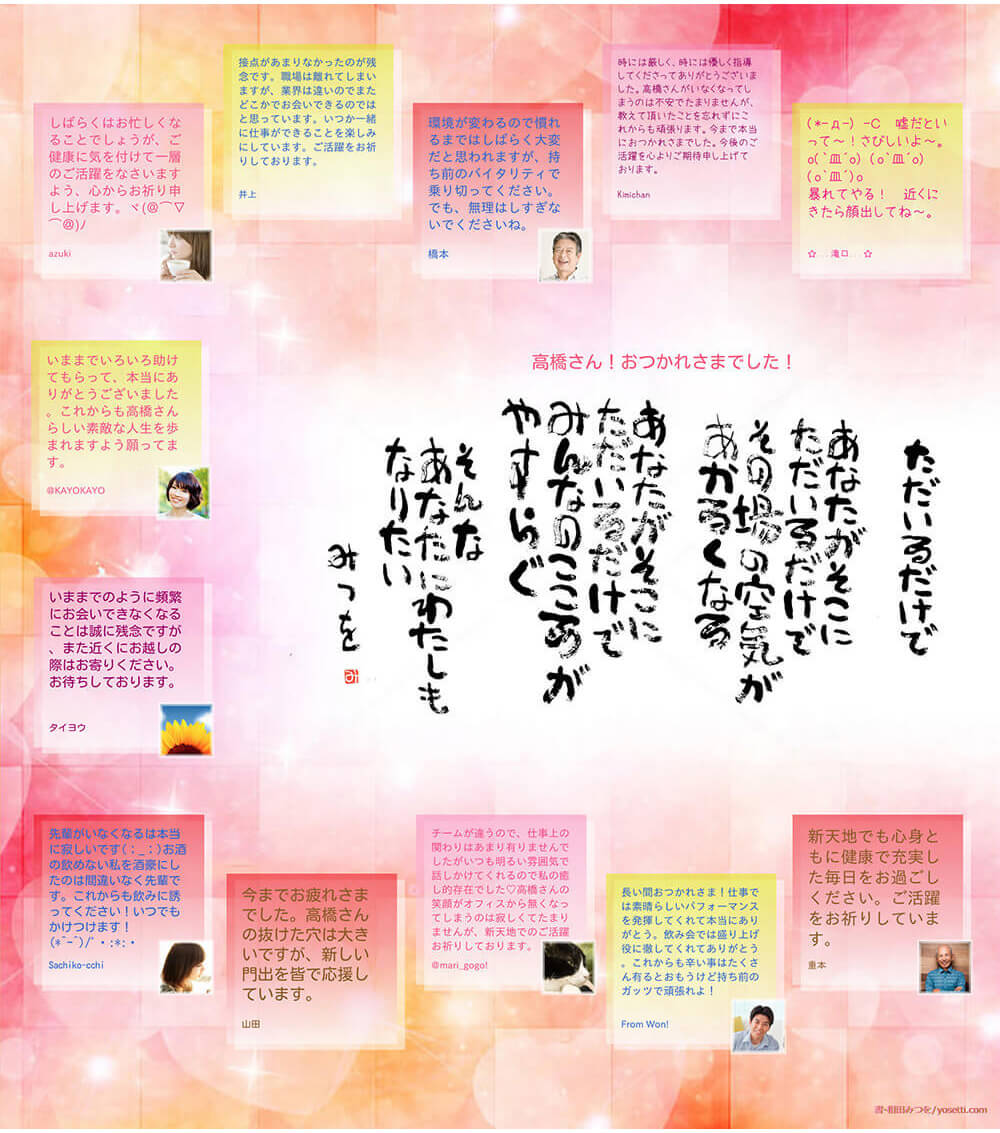 しばらくはお忙しくな
ることでしょうが、ご
健康に気を付けて一層
のご活躍をなさいます
よう、心からお祈り申
し上げます。ヾ(@⌒▽
⌒@)ノ
azuki
接点があまりなかったのが残
念です。職場は離れてしまい
ますが、業界は違いのでまた
どこかでお会いできるのでは
と思っています。いつか一緒
に仕事ができることを楽しみ
にしています。ご活躍をお祈
りしております。
井上
環境が変わるので慣れ
るまではしばらく大変
だと思われますが、持
ち前のバイタリティで
乗り切ってください。
でも、無理はしすぎな
いでくださいね。
橋本
時には厳しく、時には優しく指導
してくださってありがとうございま
した。高橋さんがいなくなってし
まうのは不安でたまりませんが、
教えて頂いたことを忘れずにこ
れからも頑張ります。今まで本当
におつかれさまでした。今後のご
活躍を心よりご期待申し上げて
おります。
Kimichan
(*-д-) -C 嘘だとい
って～！さびしいよ～。
o(`皿´o) (o`皿´o)
(o`皿´)o
暴れてやる！ 近くに
きたら顔出してね～。
☆...滝口...☆
高橋さん！おつかれさまでした！
ただいるだけで
あなたがそこに
ただいるだけで
その場の空気が
あかるくなる
あなたがそこに
ただいるだけで
みんなのこころが
やすらぐ
そんな
あなたにわたしも
なりたい
みつを
いままでいろいろ助け
てもらって、本当にあ
りがとうございました
。これからも高橋さん
らしい素敵な人生を歩
まれますよう願ってま
す。
@KAYOKAYO
いままでのように頻繁
にお会いできなくなる
ことは誠に残念ですが
、また近くにお越しの
際はお寄りください。
お待ちしております。
タイヨウ
先輩がいなくなるは本当
に寂しいです(；_；)お酒
の飲めない私を酒豪にし
たのは間違いなく先輩で
す。これからも飲みに誘
ってください！いつでも
かけつけます！
(*ˆ-ˆ)/ﾟ・:*:・
Sachiko-cchi
今までお疲れさま
でした。高橋さん
の抜けた穴は大き
いですが、新しい
門出を皆で応援し
ています。
山田
チームが違うので、仕事上の
関わりはあまり有りませんで
したがいつも明るい雰囲気で
話しかけてくれるので私の癒
し的存在でした♡高橋さんの
笑顔がオフィスから無くなっ
てしまうのは寂しくてたまり
ませんが、新天地でのご活躍
お祈りしております。
@mari_gogo!
長い間おつかれさま！仕事で
は素晴らしいパフォーマンス
を発揮してくれて本当にあり
がとう。飲み会では盛り上げ
役に徹してくれてありがとう
。これからも辛い事はたくさ
ん有るとおもうけど持ち前の
ガッツで頑張れよ！
From Won!
新天地でも心身と
もに健康で充実し
た毎日をお過ごし
ください。ご活躍
をお祈りしていま
す。
重本
書・相田みつを/yosetti.com